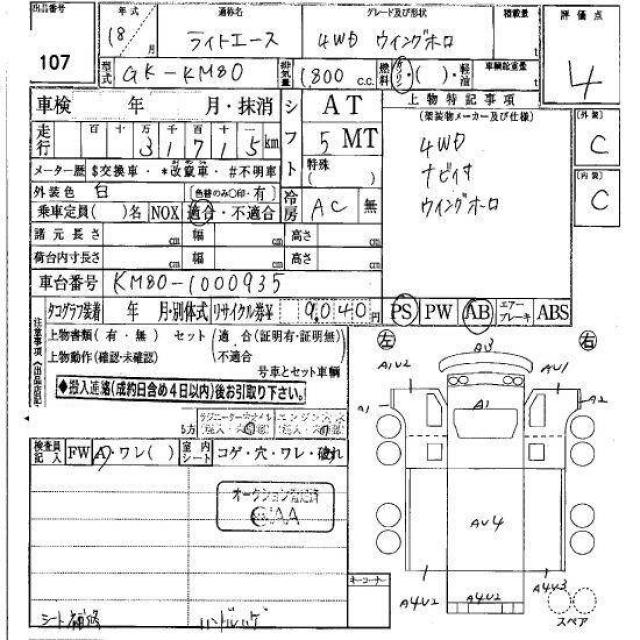 出品番号 年式 通称名 グレード及び形状 積載量 評価点
107 18 月 ライトエース 4WD ウイングホロ t 4
型式 GK-KM80 排気量 1,800 c.c. 燃料 ガソリン・( )・軽油 車輌総重量 t
車検 年 月・抹消 シフト AT 上物特記事項
(架装物メーカー及び仕様) [外装]
走行 百 十 万 千 百 十 km 5 MT 4WD C
3 1 7 1 5
メーター歴 $交換車・*改竄車・#不明車 特殊 ( ) ナビイオ [内装]
外装色 白 (色替のみ○印・有) 冷房 AC 無 ウイングホロ C
乗車定員( )名 NOX 適合・不適合
諸元長さ cm 幅 cm 高さ cm
荷台内寸長さ cm 幅 cm 高さ cm
車台番号 KM80-1000935
タコグラフ装着 年 月・別体式 リサイクル券¥ 9,040円 PS PW AB エアーブレーキ ABS
注意事項(出品店記
上物書類(有・無) セット 適合(証明有・証明無)
上物動作(確認・未確認) 不適合
号車とセット車輌
◆搬入連絡(成約日含め4日以内)後お引取り下さい。
左 右
A3
A1V2 AV1
A1 A1 A2
検査員記入 FW A・ワレ( ) 室内シート コゲ・穴・ワレ・破れ
オークション
CAA
AV4
キーコーナー
A4V2 A4V2 A4V3
シート補修 ハンドルハゲ スペア